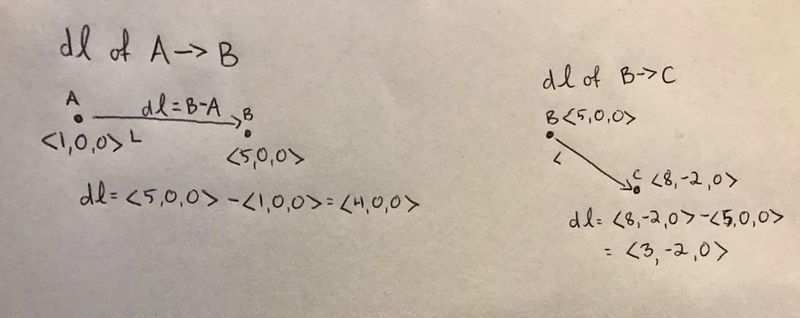 dl of A→B
A
dl=B-A
B
<1,0,0> L
<5,0,0>
dl= <5,0,0> -<1,0,0>=<4,0,0>
dl of B→C
B<5,0,0>
L
C <8,-2,0>
dl= <8,-2,0>-<5,0,0>
= <3,-2,0>